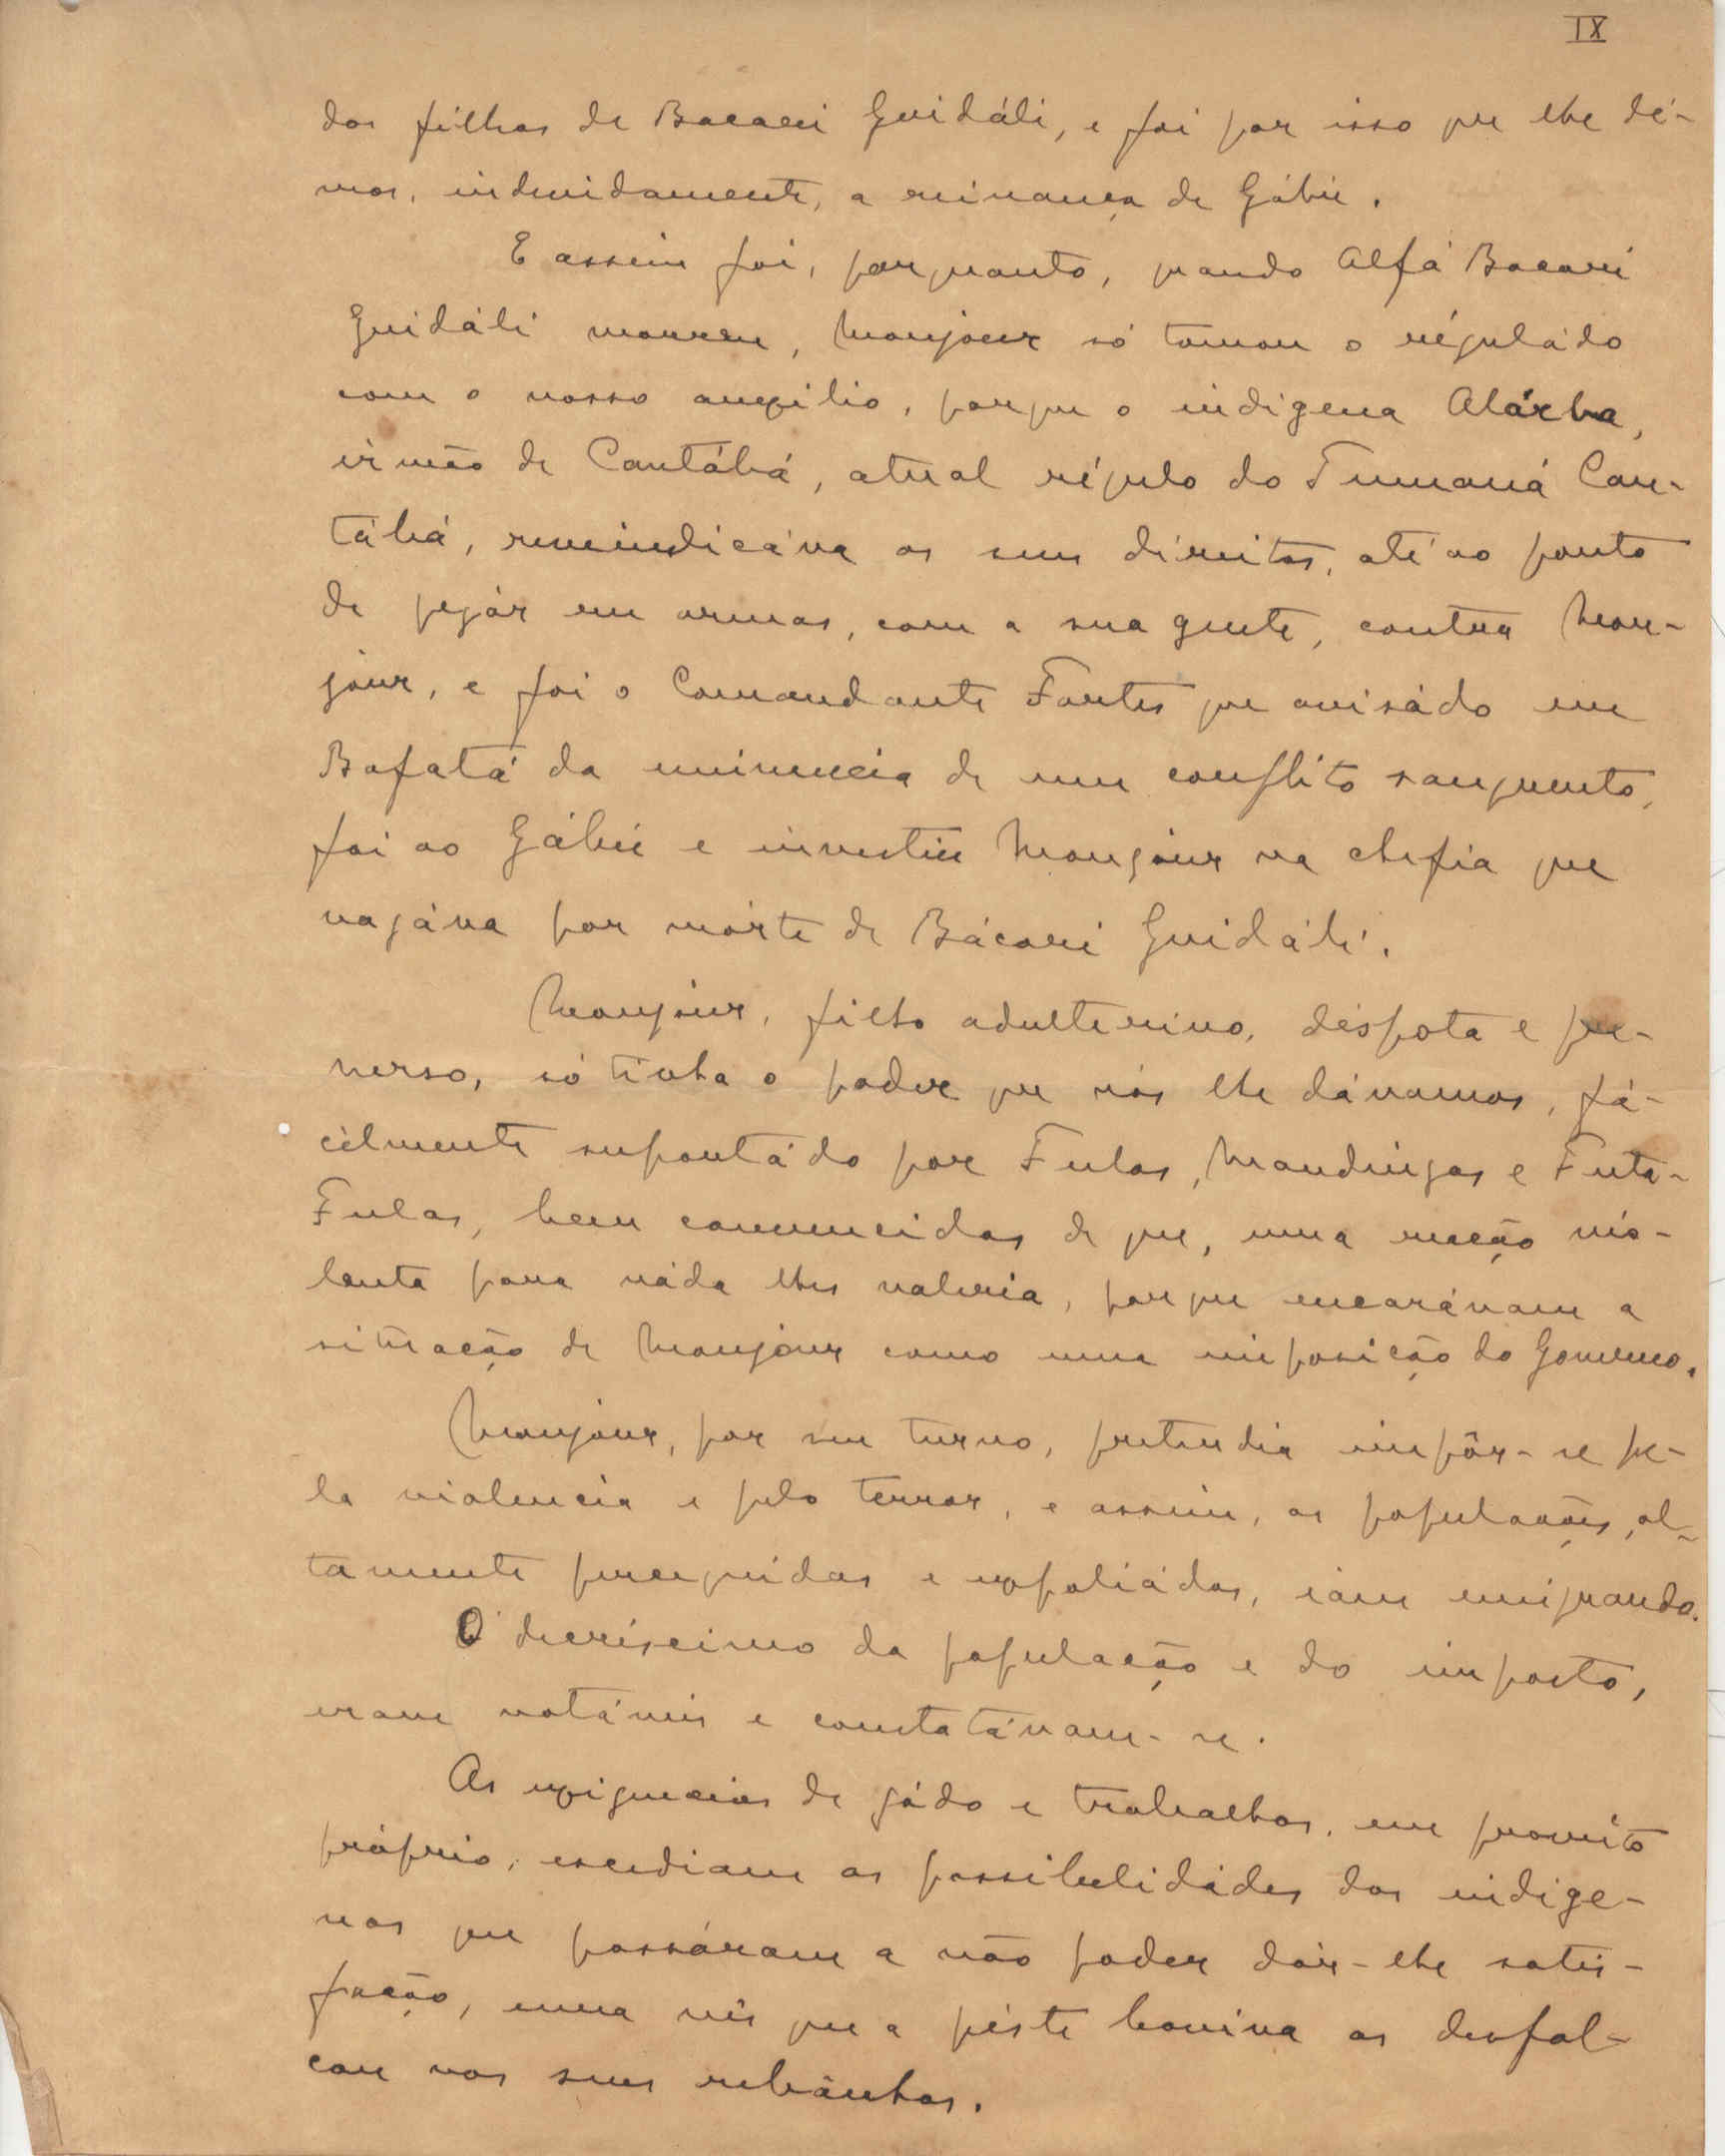 IX
dos filhos de Bacari Guidáli, e foi por isso que lhe dé-
mos, indevidamente, a reinança de Gábú.
E assim foi, porquanto, quando Alfá Bacari
Guidáli morreu, Monjour só tomou o réguládo
com o nosso auxilio, porque o indigena Alárba,
irmão de Cantábá, atual régulo do Tumaná Can-
tábá, reveindicáva os seus direitos, até ao ponto
de pegár em armas, com a sua gente, contra Mon-
jour, e foi o Comandante Fortes que avisádo em
Bafatá da iminencia de um conflito sanguento,
foi ao Gábú e investiu Monjour na chefia que
vagáva por mórte de Bácari Guidáli.
Monjour, filho adulterino, déspota e per-
verso, só tinha o poder que nós lhe dávamos, fá-
cilmente suportádo por Fulas, Mandingas e Futa-
Fulas, bem convencidos de que, uma reação vio-
lenta para náda lhes valeria, porque encarávam a
situação de Monjour como uma imposição do Governo.
Monjour, por seu turno, pretendia impôr-se pe-
la violencia e pelo terror, e assim, as populações, al-
tamente perseguidas e expoliádas, iam emigrando.
O decréscimo da população e do imposto,
eram notáveis e constatávam-se.
As exigencias de gádo e trabalhos, em proveito
próprio, excediam as possibilidádes dos indige-
nas que passáram a não poder dár-lhe satis-
fação, uma vês que a péste bovina os desfal-
cou nos seus rebânhos.